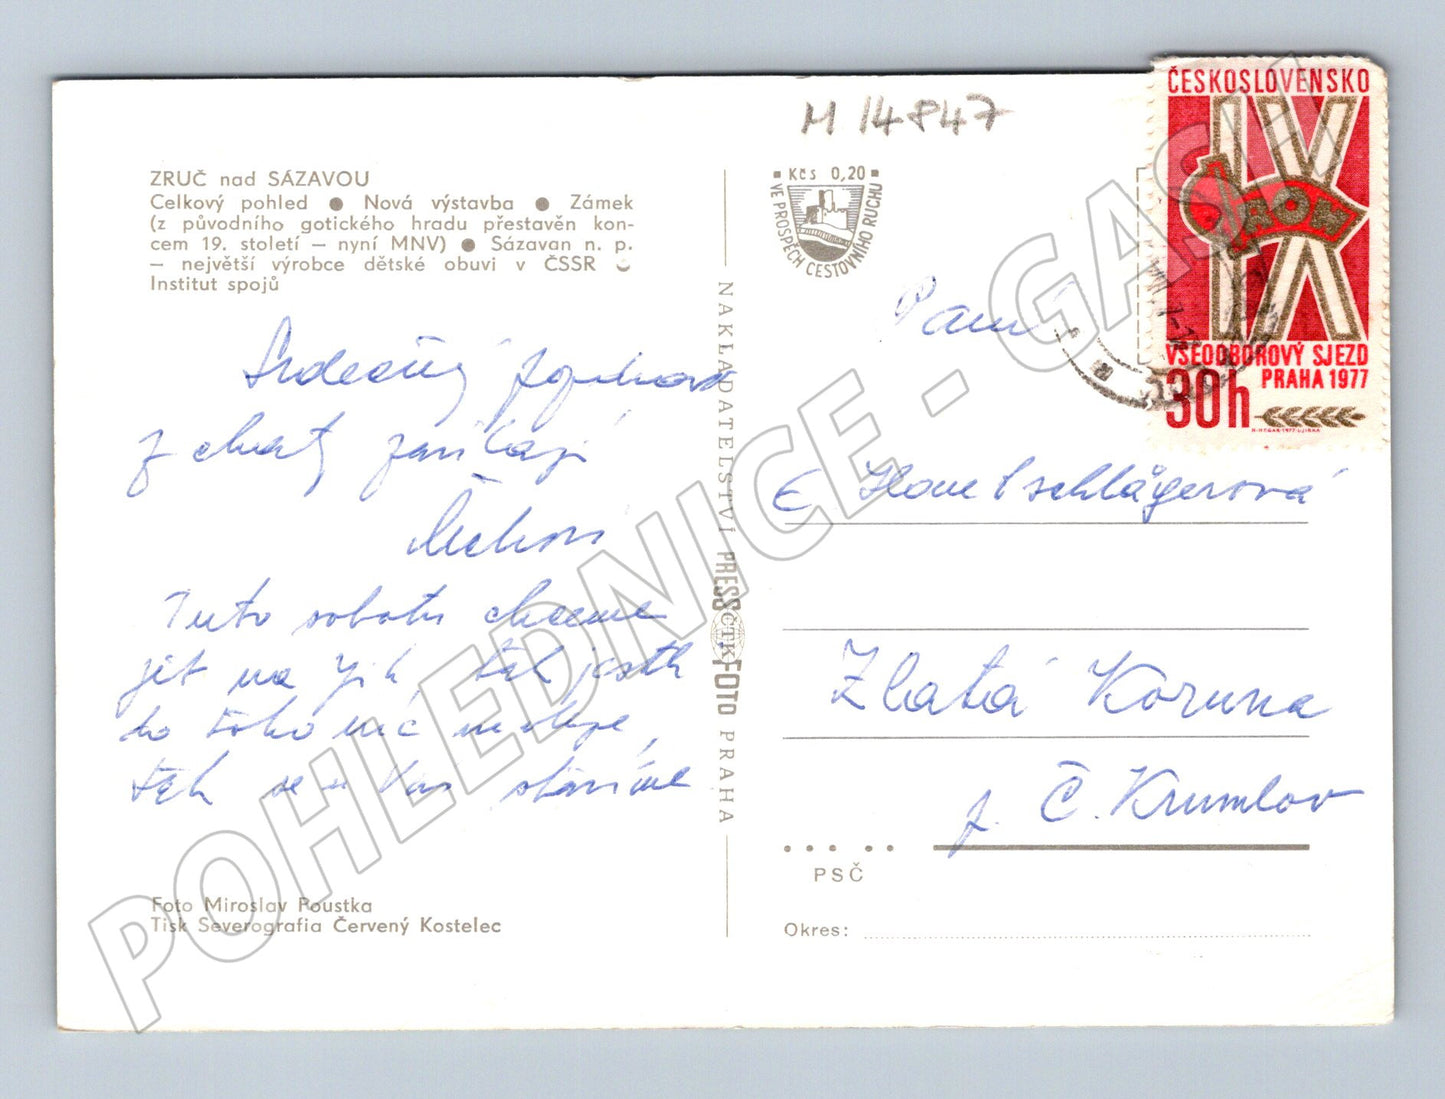 M 14847
ČESKOSLOVENSKO
IX
ROH
VŠEODBOROVÝ SJEZD
PRAHA 1977
30h
ZRUČ nad SÁZAVOU
Celkový pohled ● Nová výstavba ● Zámek
(z původního gotického hradu přestavěn kon-
cem 19. století – nyní MNV) ● Sázavan n. p.
– největší výrobce dětské obuvi v ČSSR ●
Institut spojů
Kčs 0,20
VE PROSPĚCH CESTOVNÍHO RUCHU
Srdečný pozdrav
z chaty zasílají
Tuto sobotu chceme
jet na jih, tak jestli
do toho nic nevleze,
tak se u Vás stavíme
NAKLADATELSTVÍ PRESSFOTO PRAHA
ČTK
Paní
Schlägerová
Zlatá Koruna
Č. Krumlov
PSČ
Okres:
Foto Miroslav Poustka
Tisk Severografia Červený Kostelec
POHLEDNICE - GASH